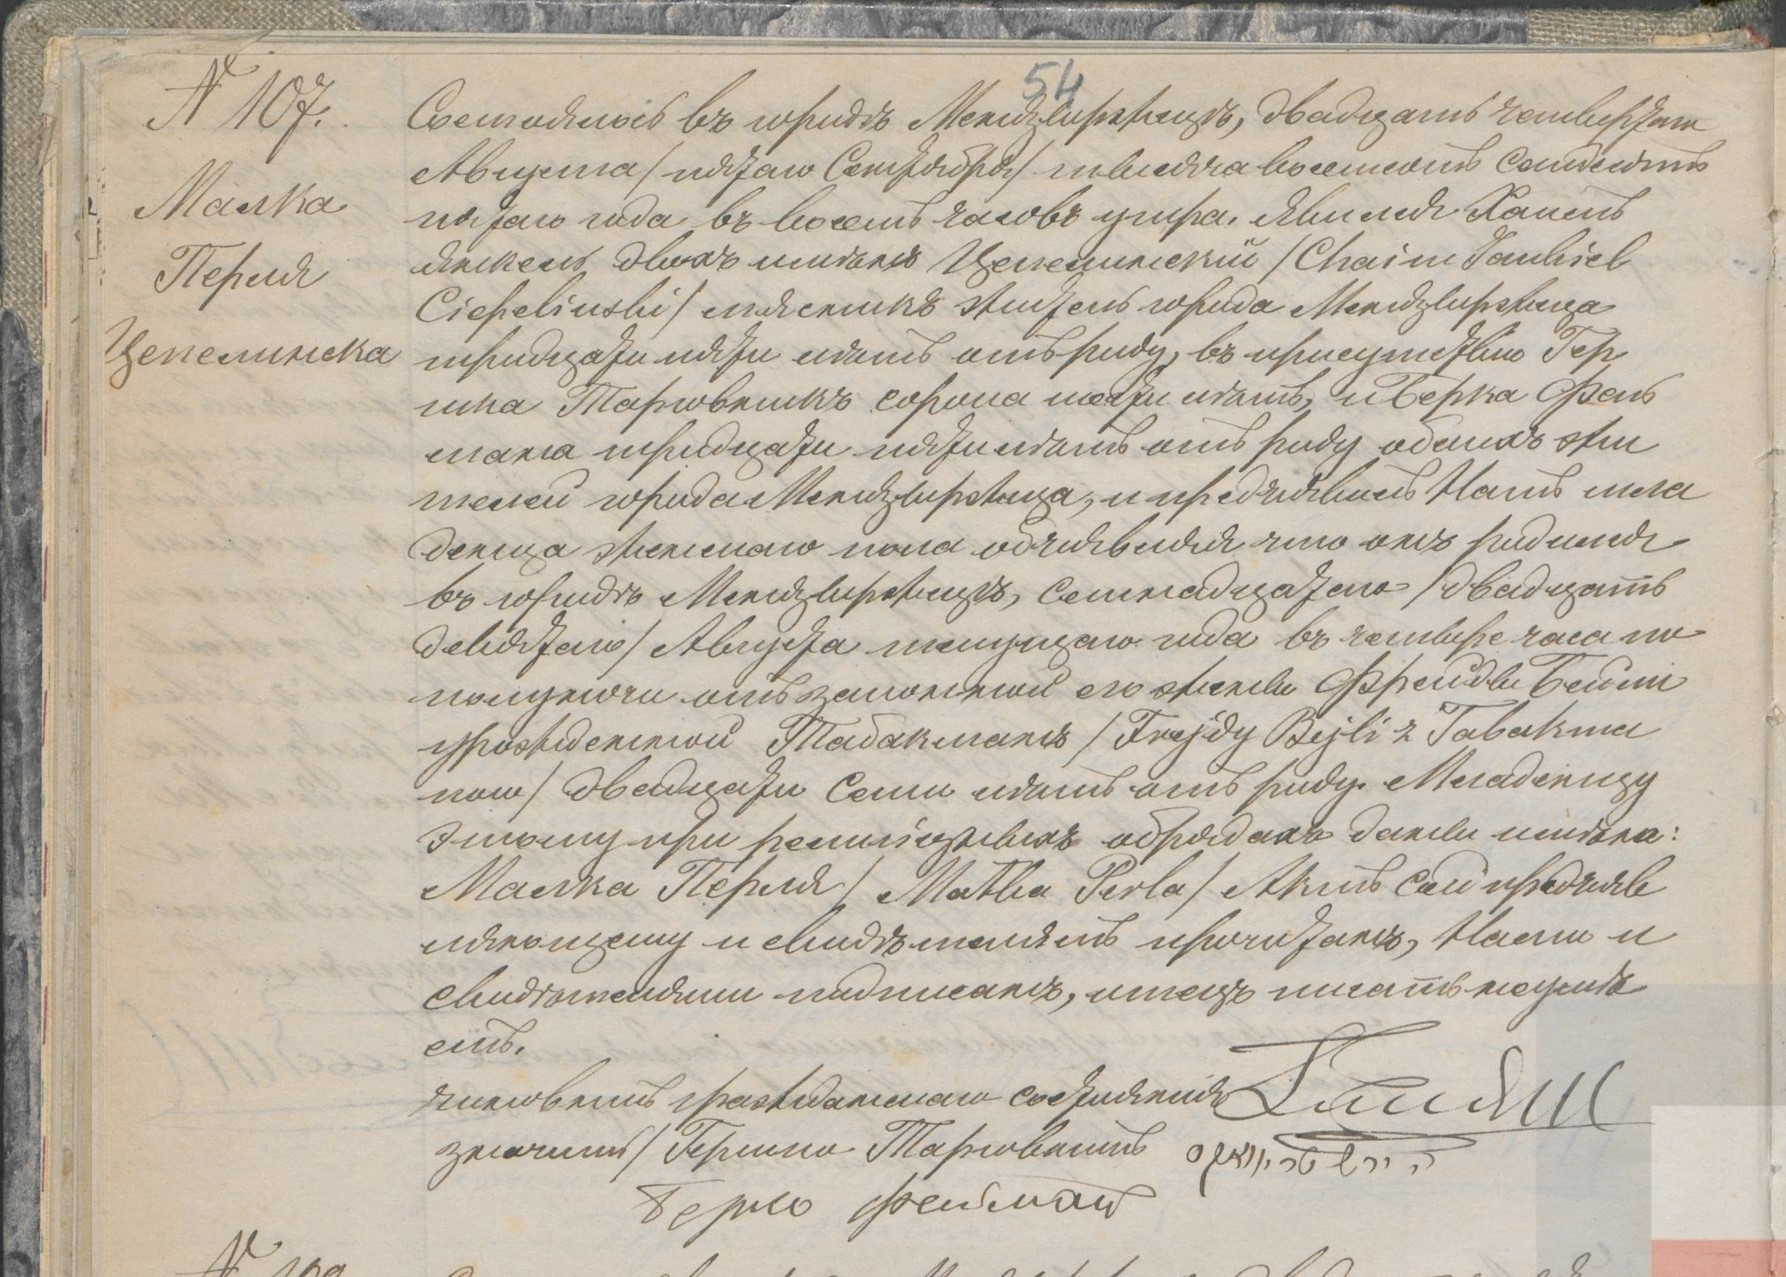 54
№ 107.
Малка
Перля
Цепелинска
Состоялось въ городѣ Мендзыржецѣ, двадцать четвертаго
Августа / пятаго Сентября / тысяча восемсотъ семьдесятъ
пятаго года въ восемь часовъ утра. явился Хаимъ
Янкель двохъ именъ Цепелинскій / Chaim Jankiel
Ciepelinski / мясникъ житель города Мендзыржеца
тридцати пяти лѣтъ отъ роду, въ присутствіи Гер
шка Тарговникъ сорока шести лѣтъ, и Берка Фей
мана тридцати пяти лѣтъ отъ роду обоихъ жи
телей города Мендзыржеца, и предъявилъ Намъ мла
денца женскаго пола объявляя что онъ родился
въ городѣ Мендзыржецѣ, семнадцатаго / двадцать
девятаго / Августа текущаго года въ четыре часа по
полуночи отъ законной его жены Фрейды Бейли
урожденной Табакманъ / Frejdy Bejli z Tabakma
now / двадцати семи лѣтъ отъ роду. Младенцу
этому при религіозныхъ обрядахъ даны имена:
Малка Перля / Małka Perla / Актъ сей предъяв
ляющему и свидѣтелямъ прочитанъ, Нами и
свидѣтелями подписанъ, отецъ писать неумѣ
етъ.
Чиновникъ гражданскаго состоянія
Гершко Тарговникъ
Берко Фейман
№ 108